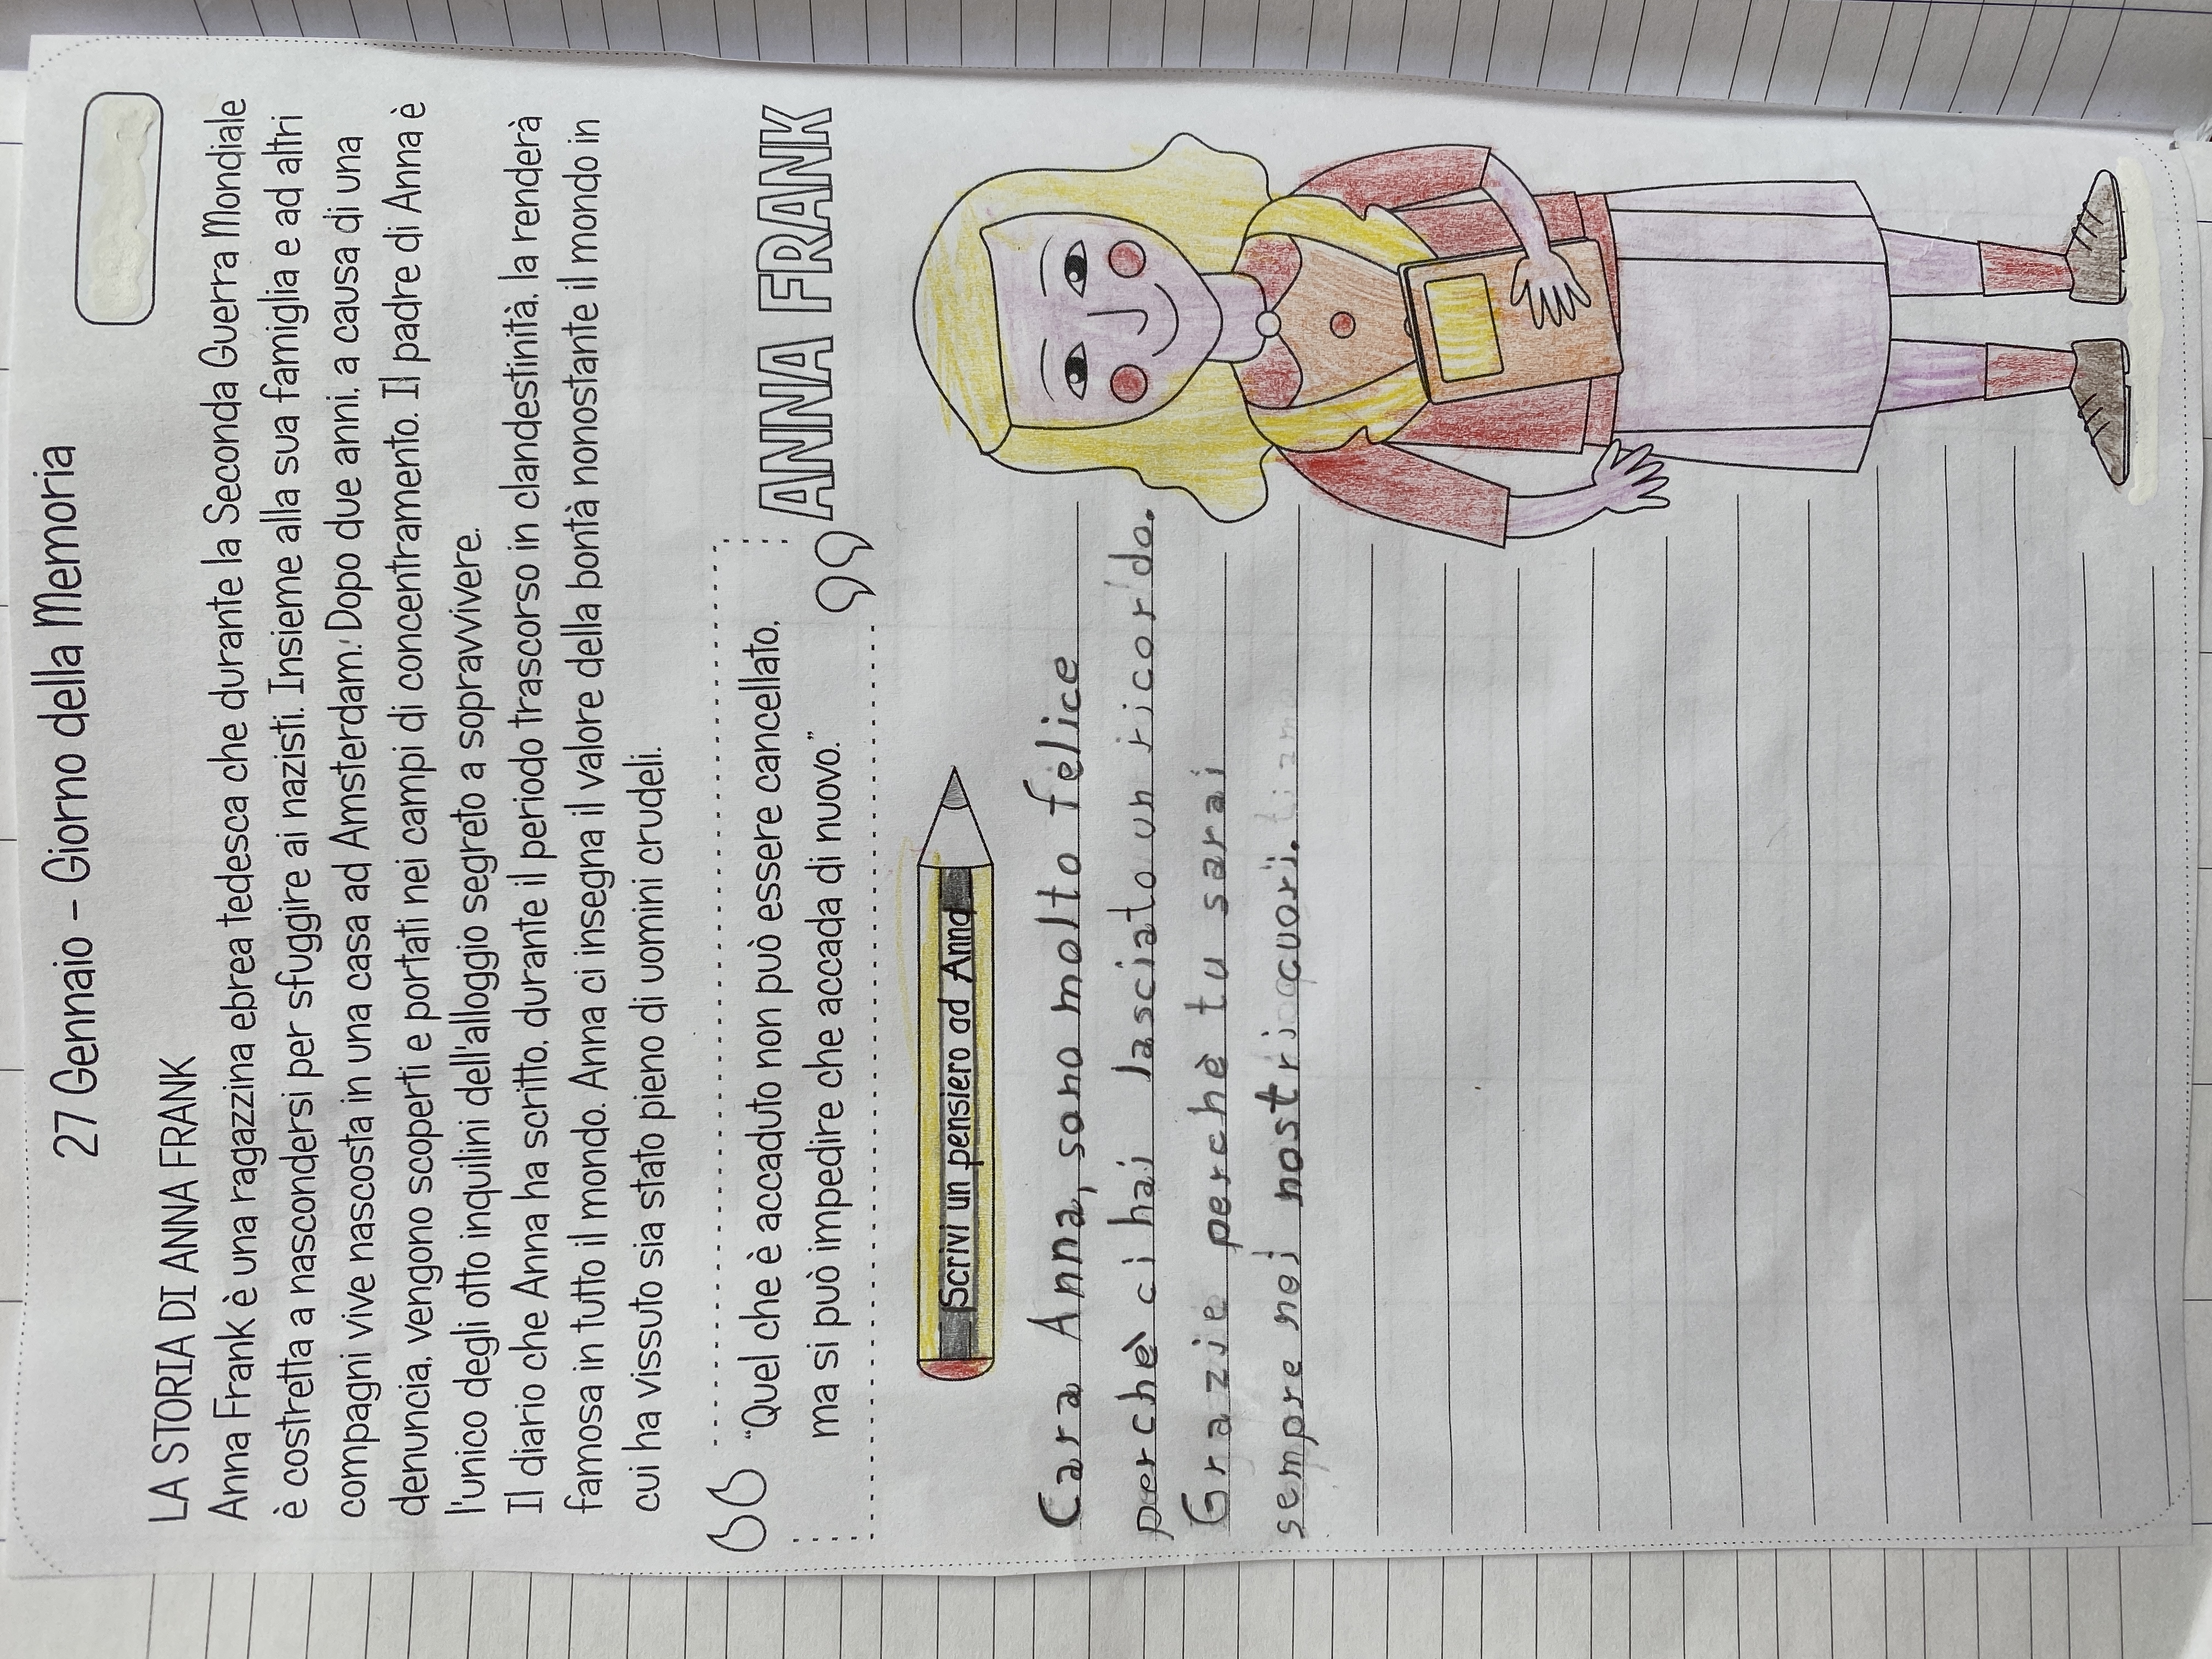 27 Gennaio - Giorno della Memoria
LA STORIA DI ANNA FRANK
Anna Frank è una ragazzina ebrea tedesca che durante la Seconda Guerra Mondiale
è costretta a nascondersi per sfuggire ai nazisti. Insieme alla sua famiglia e ad altri
compagni vive nascosta in una casa ad Amsterdam. Dopo due anni, a causa di una
denuncia, vengono scoperti e portati nei campi di concentramento. Il padre di Anna è
l'unico degli otto inquilini dell'alloggio segreto a sopravvivere.
Il diario che Anna ha scritto, durante il periodo trascorso in clandestinità, la renderà
famosa in tutto il mondo. Anna ci insegna il valore della bontà nonostante il mondo in
cui ha vissuto sia stato pieno di uomini crudeli.
"Quel che è accaduto non può essere cancellato,
ma si può impedire che accada di nuovo."
ANNA FRANK
Scrivi un pensiero ad Anna
Cara Anna, sono molto felice
perchè ci hai lasciato un ricordo.
Grazie perchè tu sarai
sempre nei nostri cuori.